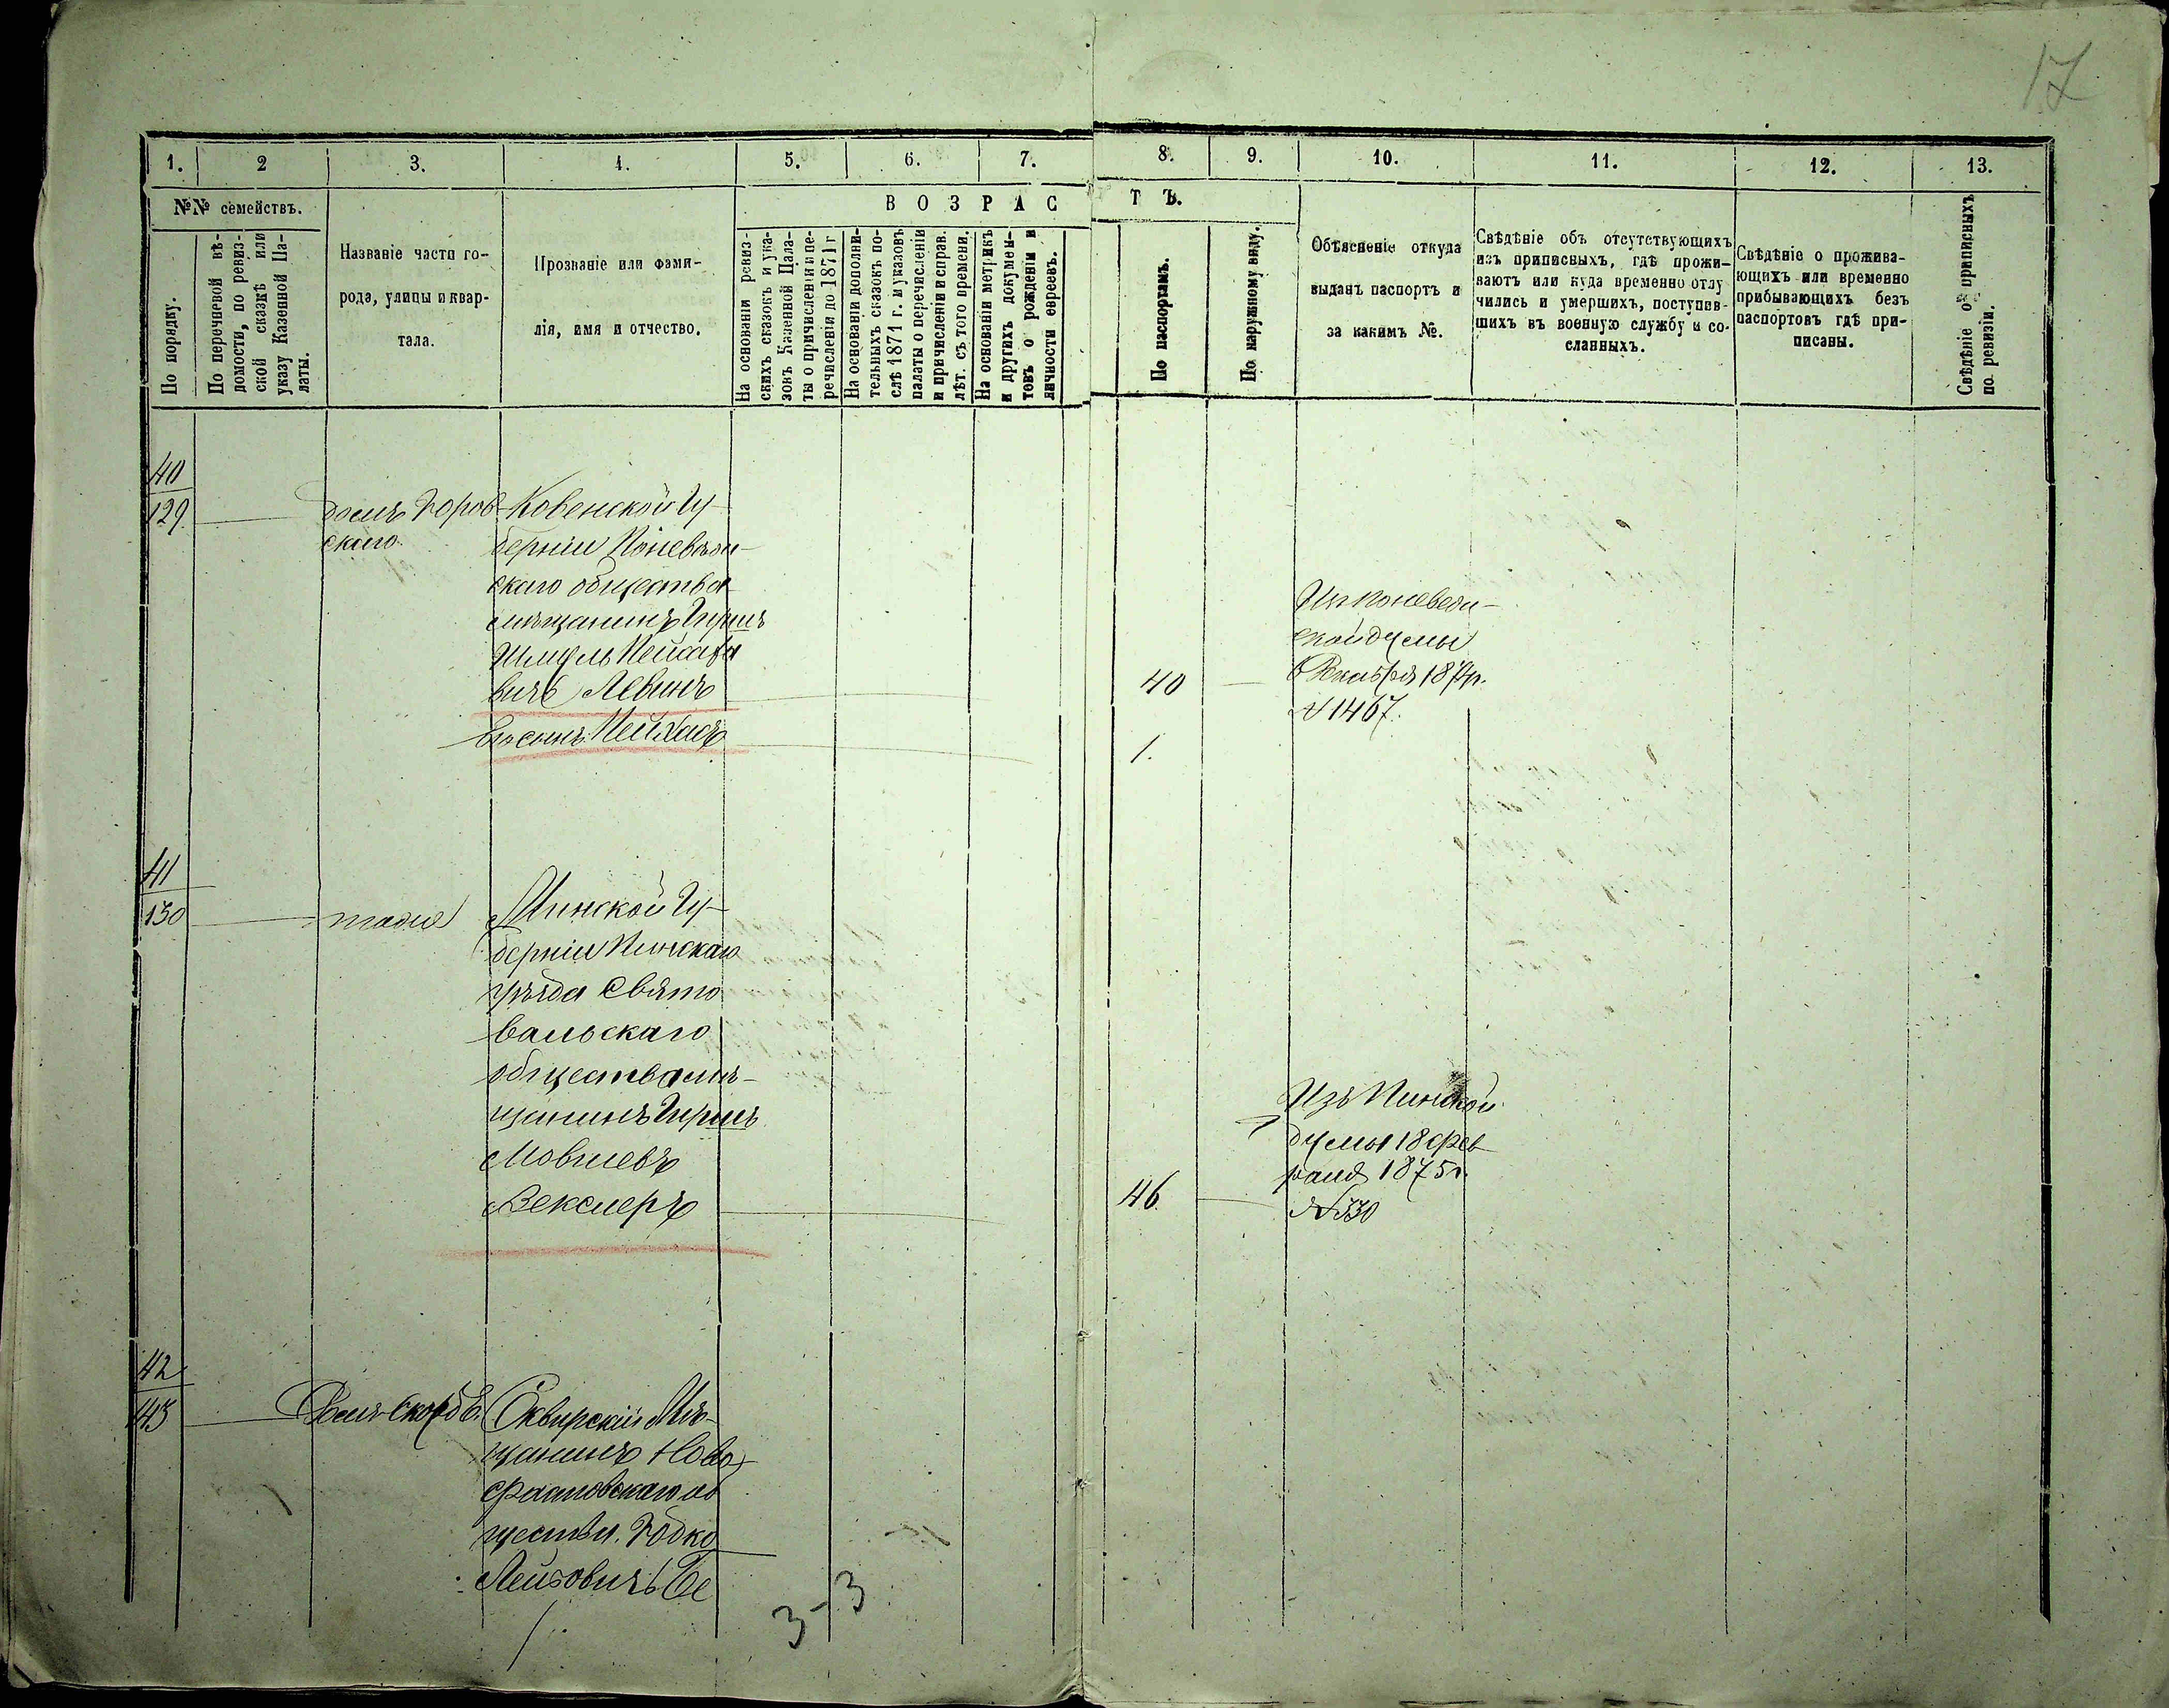 17
1. 2 3. 4. 5. 6. 7. 8. 9. 10. 11. 12. 13.
№№ семействъ.
ВОЗРАСТЪ.
По порядку.
По перечневой вѣ-
домости, по ревиз-
ской сказкѣ или
указу Казенной Па-
латы.
Названіе части го-
рода, улицы и квар-
тала.
Прозваніе или фами-
лія, имя и отчество.
На основаніи ревиз-
скихъ сказокъ и ука-
зовъ Казенной Пала-
ты о причисленіи и пе-
речисленіи до 1871 г
На основаніи дополни-
тельныхъ сказокъ по-
слѣ 1871 г. и указовъ
палаты о перечисленіи
и причисленіи и справ.
лѣт. съ того времени.
На основаніи метрикъ
и другихъ докумен-
товъ о рожденіи и
личности евреевъ.
По паспортамъ.
По наружному виду.
Объясненіе откуда
выданъ паспортъ и
за какимъ №.
Свѣдѣніе объ отсутствующихъ
изъ приписныхъ, гдѣ прожи-
ваютъ или куда временно отлу
чились и умершихъ, поступив-
шихъ въ военную службу и со-
сланныхъ.
Свѣдѣніе о прожива-
ющихъ или временно
прибывающихъ безъ
паспортовъ гдѣ при-
писаны.
Свѣдѣніе о приписныхъ
по ревизіи.
40
129
домъ
скаго
Ковенской Гу-
берніи
скаго общества
мѣщанинъ Гиршъ
Шмуль
вичъ Левинъ
40
думы
187
№ 1467.
Его сынъ
1.
41
130
тоже
Минской Гу-
берніи Пинскаго
уѣзда Свято
вольскаго
общества мѣ-
щанинъ Гиршъ
Мовшевъ
Векслеръ
46
Изъ Пинской
думы 18 фев
раля 1875 г.
№ 530
42
43
Домъ
Сквирскій Мѣ-
щанинъ Ново
фастовскаго об
щества.
Лейзовичъ Бе
3-3